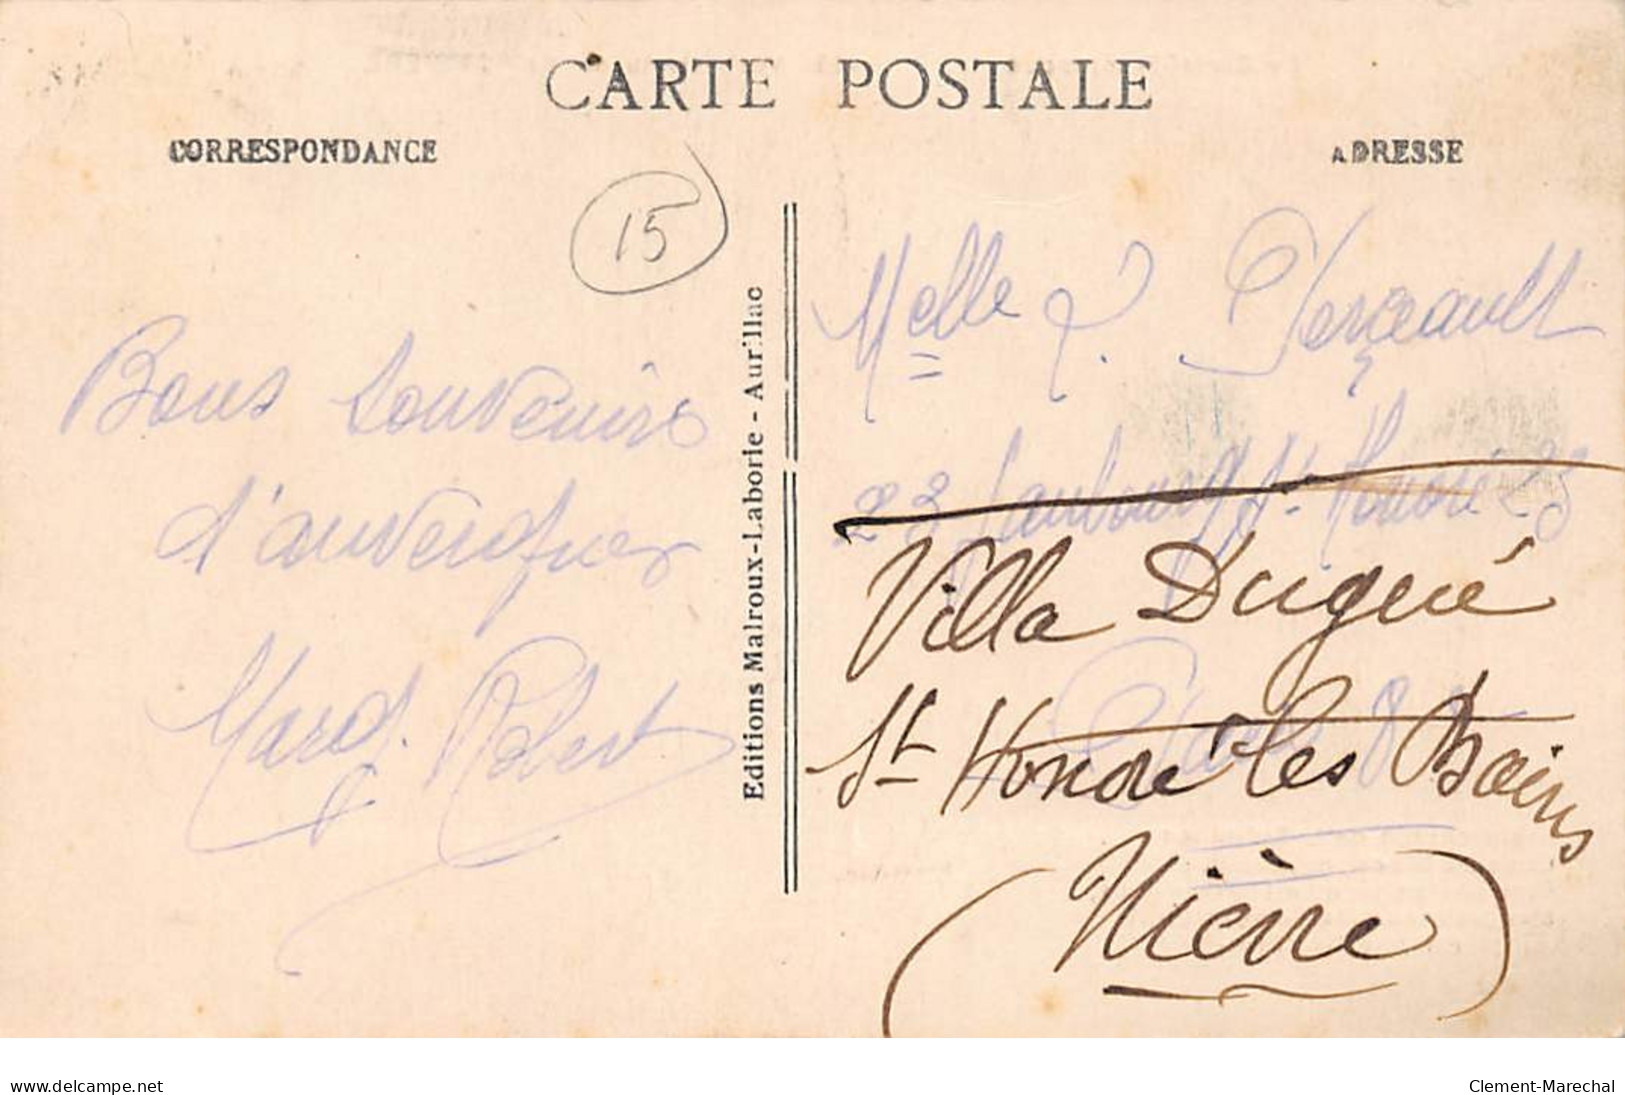 CARTE POSTALE
CORRESPONDANCE
ADRESSE
15
Bons souvenirs
d'auvergne
Marg. Robert
Editions Malroux-Laborie - Aurillac
Melle
23 Faubourg St Honoré 23
Villa Dugué
St Honoré les Bains
(Nièvre)
delcampe.net
Clement-Marechal